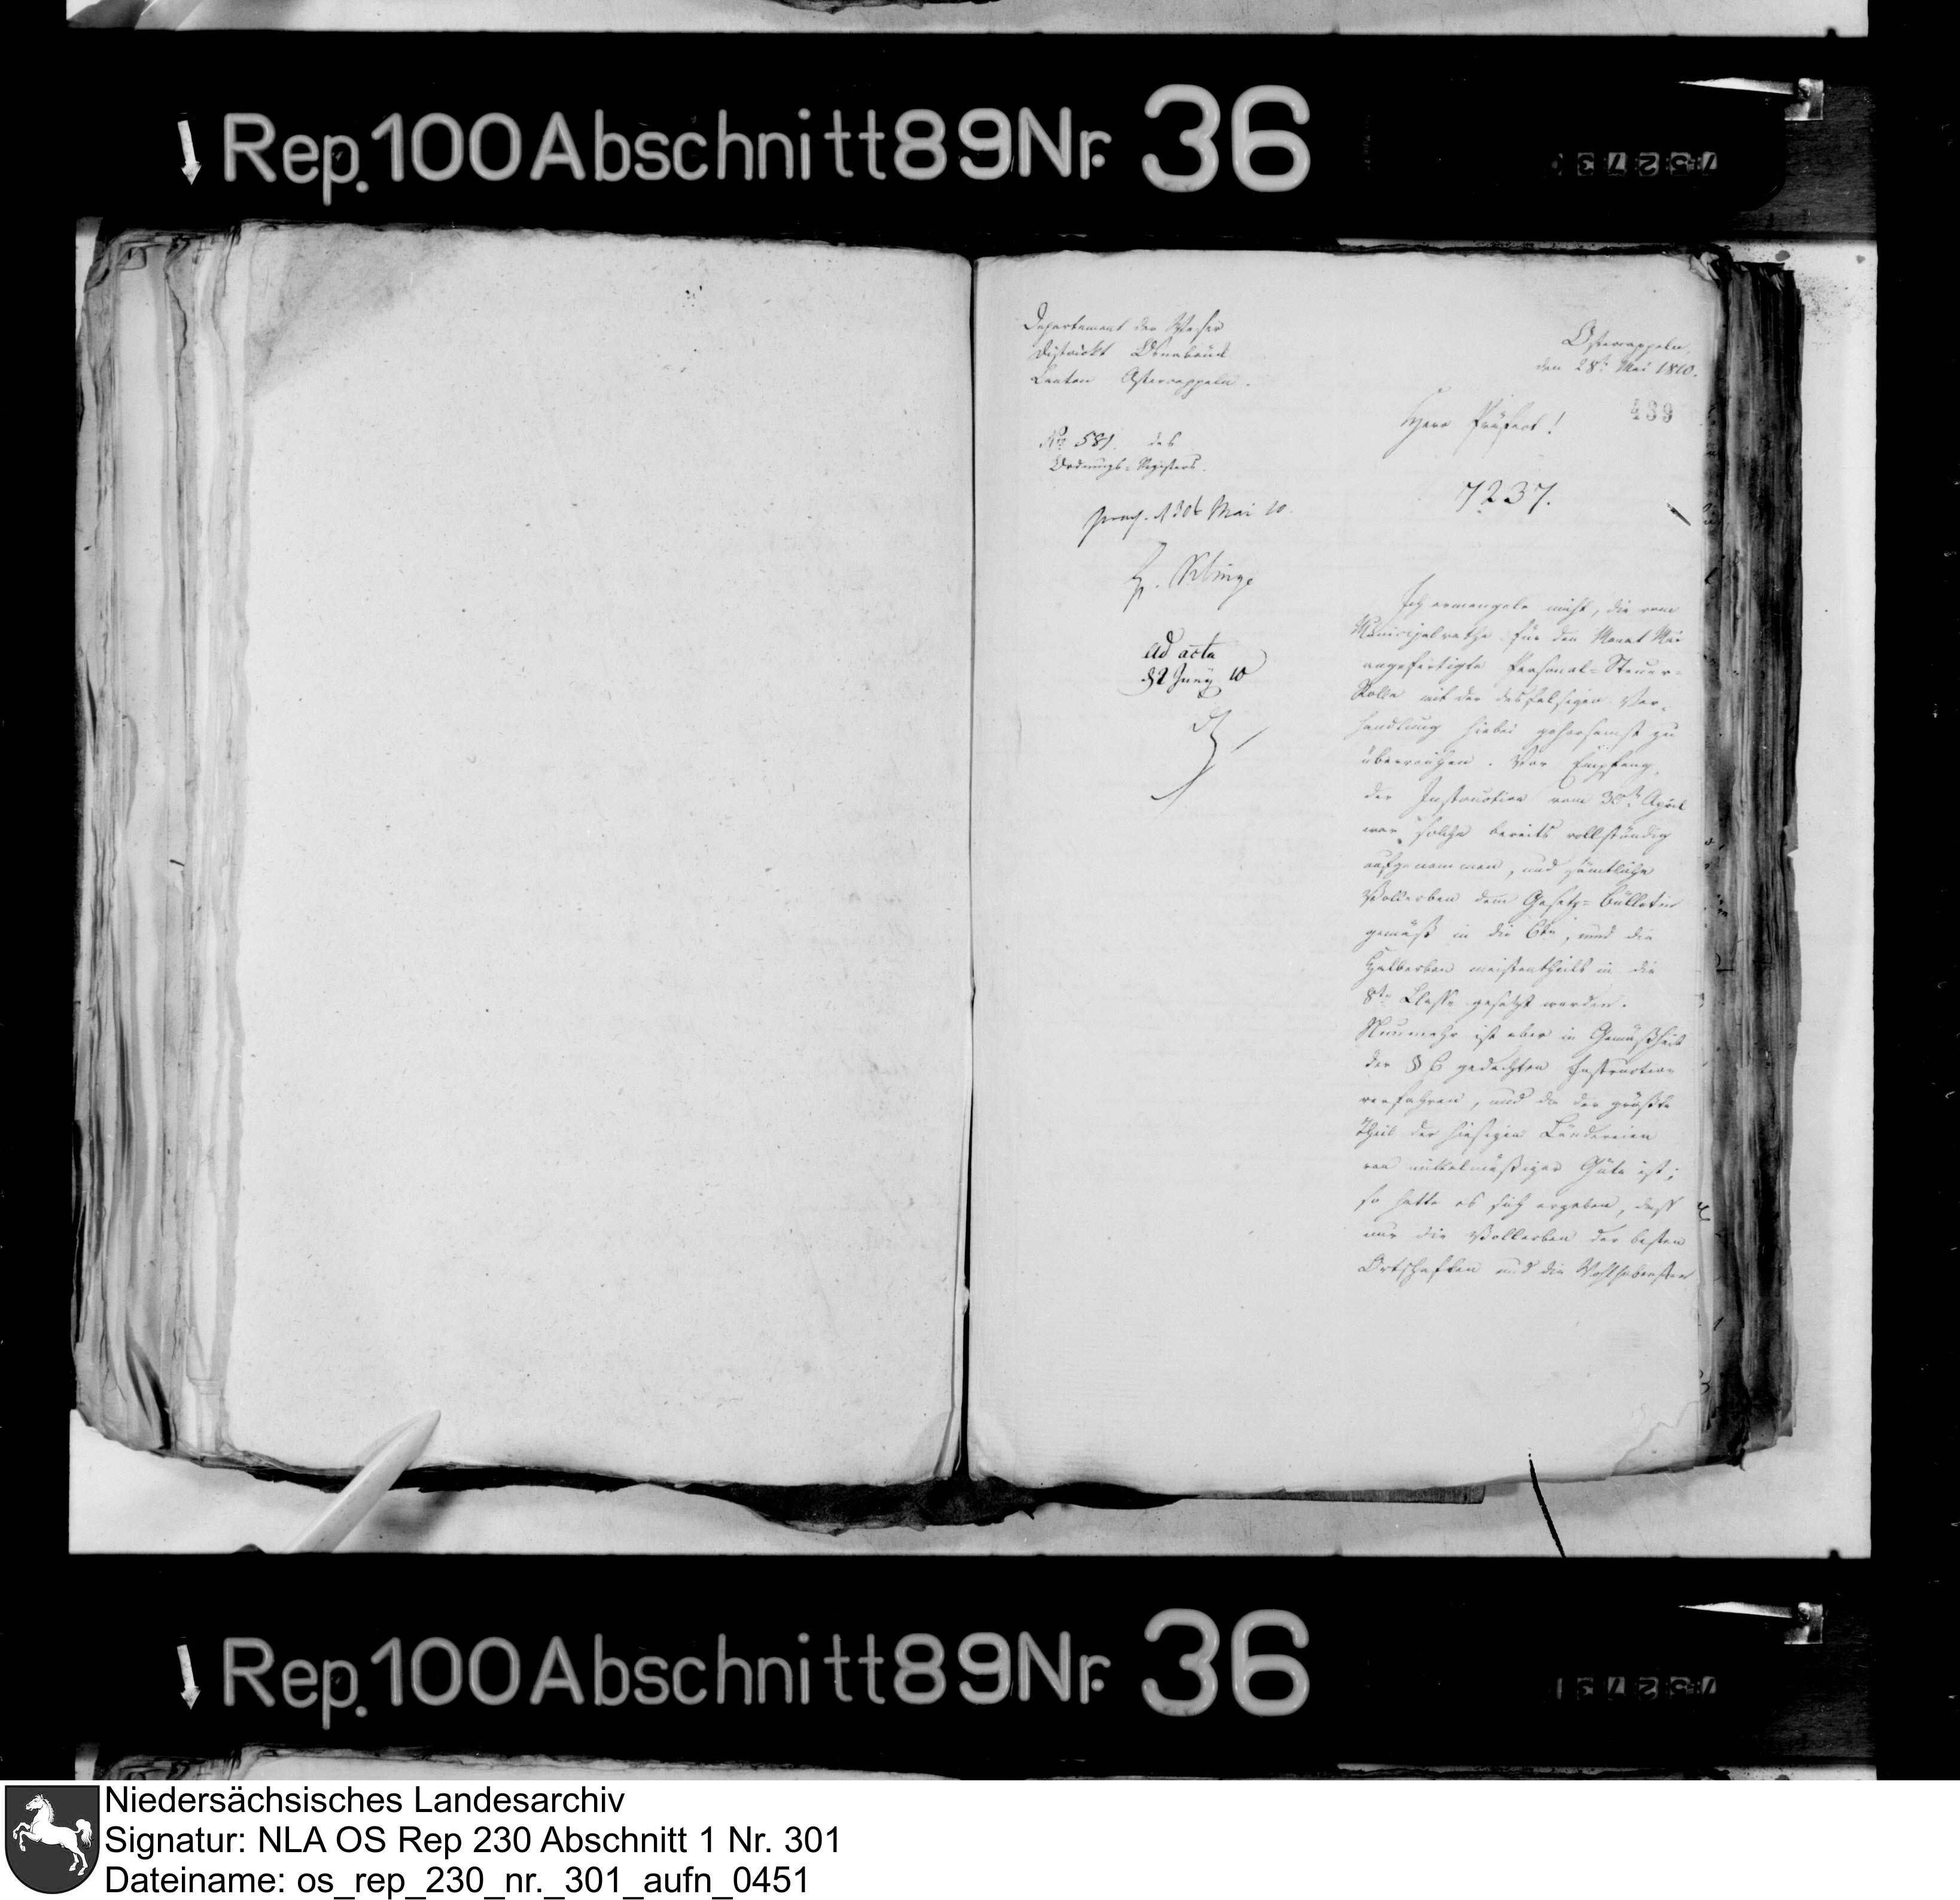 Rep. 100 Abschnitt 89 Nr. 36
Departement der Weser
District Osnabrück
Canton Ostercappeln.
No 581. des
Ordnungs-Registers.
30t Mai 10.
Klinge
ad acta
d 2 Juny 10
Ostercappeln,
den 28t Mai 1810.
439
Herr Präfect!
7237.
Ich ermangele nicht, die vom
Municipalrathe für den Monat Mai
angefertigte Personal-Steuer-
Rolle mit der desfalsigen Ver-
handlung hiebei gehorsamst zu
überreichen. Vor Empfang
der Instruction vom 30t April
war solche bereits vollständig
aufgenommen, und sämtliche
Vollerben dem Gesetz-Bülletin
gemäß in die 6te, und die
Halberben meistentheils in die
8te Classe gesetzt worden.
Nunmehr ist aber in Gemäßheit
der § 6 gedachten Instruction
verfahren, und da der größte
Theil der hiesigen Ländereien
von mittelmäßiger Güte ist;
so hatte es sich ergeben, daß
nur die Vollerben der besten
Ortschaften und die Wohlhabensten
Rep. 100 Abschnitt 89 Nr. 36
Niedersächsisches Landesarchiv
Signatur: NLA OS Rep 230 Abschnitt 1 Nr. 301
Dateiname: os_rep_230_nr._301_aufn_0451